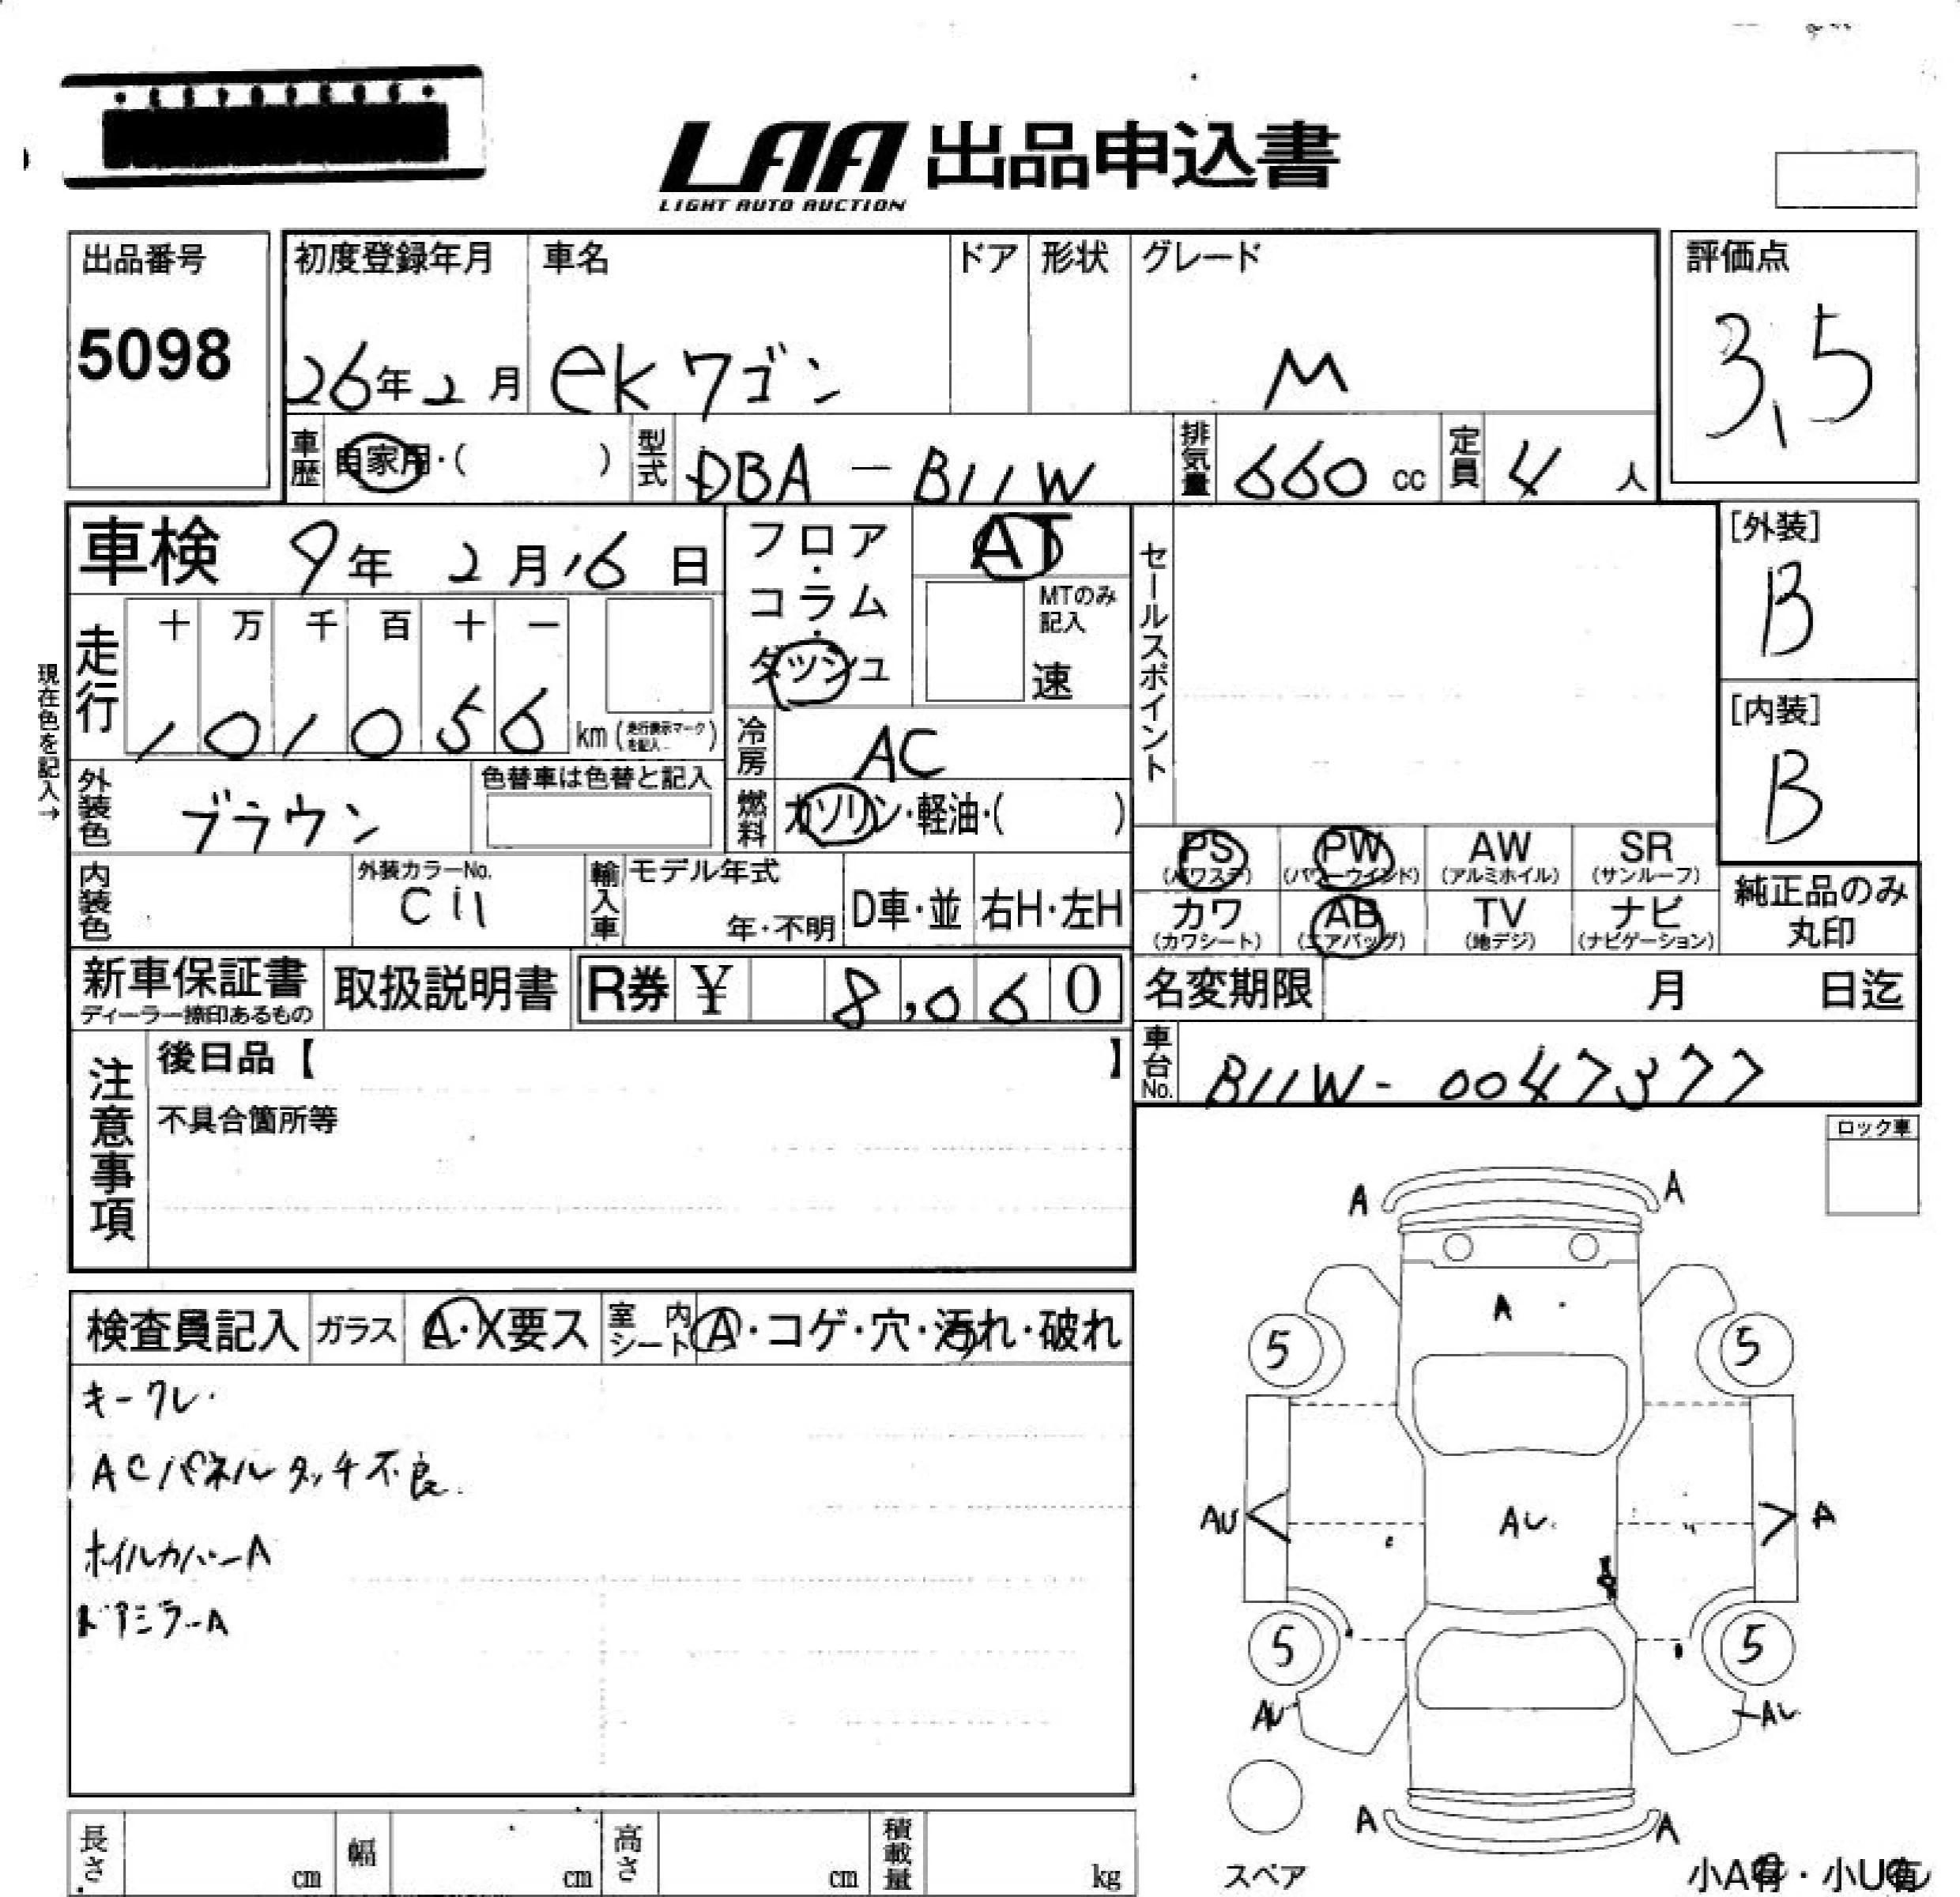 LAA 出品申込書
LIGHT AUTO AUCTION
出品番号
5098
初度登録年月 車名 ドア 形状 グレード
26年2月 ekワゴン M
評価点
3.5
車歴 自家用・( ) 型式 DBA-B11W 排気量 660cc 定員 4人
車検 9年2月16日
フロア・コラム・ダッシュ
AT
MTのみ記入
速
セールスポイント
[外装]
B
[内装]
B
現在色を記入→
走行 十 万 千 百 十 一
101056 km(走行表示マークを記入)
冷房 AC
外装色 ブラウン 色替車は色替と記入
燃料 ガソリン・軽油・( )
PS PW AW SR
(パワステ) (パワーウインド) (アルミホイル) (サンルーフ)
カワ AB TV ナビ
(カワシート) (エアバッグ) (地デジ) (ナビゲーション)
純正品のみ
丸印
内装色 外装カラーNo. C11 輸入車 モデル年式 年・不明 D車・並 右H・左H
新車保証書 取扱説明書 R券 ¥ 8,060
ディーラー捺印あるもの
名変期限 月 日迄
車台No. B11W-0047377
注意事項
後日品【 】
不具合箇所等
ロック車
検査員記入 ガラス A・X要ス 室内シート A・コゲ・穴・汚れ・破れ
キークレ
ACパネルタッチ不良
ホイルカバーA
ドアミラーA
A A
A
5 5
AU AU A
5 5
AU AU
A A
スペア
小A有・小U有
長さ cm 幅 cm 高さ cm 積載量 kg